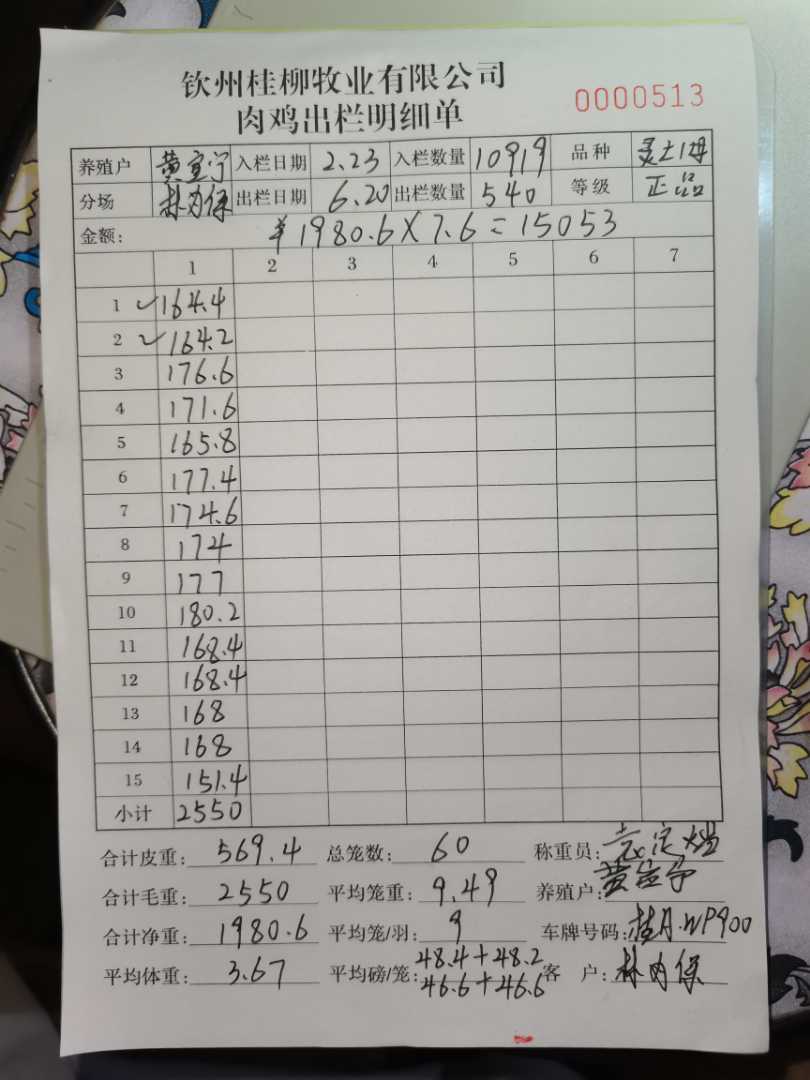 钦州桂柳牧业有限公司
肉鸡出栏明细单
0000513
养殖户 黄宣宁 入栏日期 2.23 入栏数量 10919 品种 灵土1母
分场 林为保 出栏日期 6.20 出栏数量 540 等级 正品
金额: ¥1980.6×7.6=15053
1 2 3 4 5 6 7
1 ✓164.4
2 ✓164.2
3 176.6
4 171.6
5 165.8
6 177.4
7 174.6
8 174
9 177
10 180.2
11 168.4
12 168.4
13 168
14 168
15 151.4
小计 2550
合计皮重: 569.4 总笼数: 60 称重员:
合计毛重: 2550 平均笼重: 9.49 养殖户: 黄宣宁
合计净重: 1980.6 平均笼/羽: 9 车牌号码: 桂A.WP900
平均体重: 3.67 平均磅/笼: 48.4+48.2 46.6+46.6 客 户: 林为保